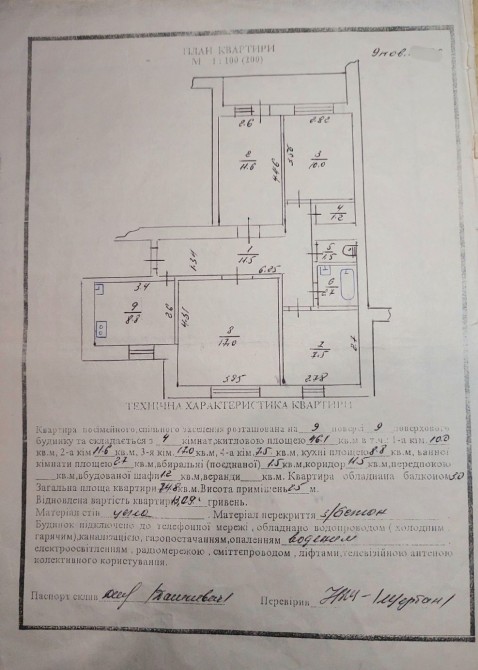 ПЛАН КВАРТИРИ
М 1 : 100 (200)
9пов.
2.6
2.82
8
11.6
4.06
5.56
3
10.0
4
1.2
5
1.5
6
2.7
1
11.5
6.05
1.34
3.4
9
8.8
2.6
4.31
3
17.0
3.95
2
7.5
2.7
2.78
ТЕХНІЧНА ХАРАКТЕРИСТИКА КВАРТИРИ
Квартира посімейного,спільного заселення розташована на 9 поверсі 9 поверхового
будинку та складається з 4 кімнат,житловою площею 46.1 кв.м в т.ч.: 1-а кім. 10.0
кв.м, 2-а кім 11.6 кв.м, 3-я кім 17.0 кв.м, 4-а кім 7.5 кв.м, кухні площею 8.8 кв.м, ванної
кімнати площею 2.7 кв.м,вбиральні (поєднаної) 1.5 кв.м,коридор 11.5 кв.м,передпокою
кв.м,вбудованої шафи 1.2 кв.м,веранди кв.м. Квартира обладнана балконом 3.0
Загальна площа квартири 74.8 кв.м.Висота приміщень 2.5 м.
Відновлена вартість квартири гривень.
Матеріал стін цегла . Матеріал перекриття з/бетон
Будинок підключено до телефонної мережі , обладнано водопроводом ( холодним
гарячим),каналізацією, газопостачанням,опаленням водяним
електроосвітленням , радіомережею , сміттєпроводом , ліфтами,телевізійною антеною
колективного користування.
Паспорт склав Перевірив